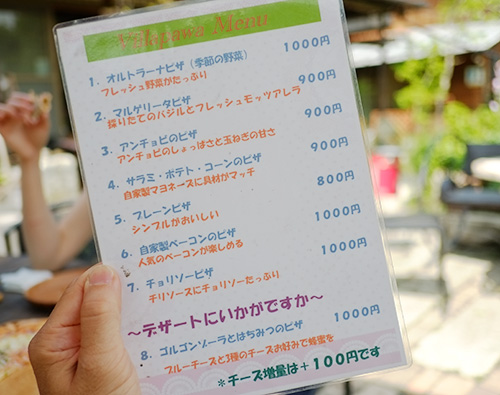 Valopawa Menu
1. オルトラーナピザ（季節の野菜） 1000円
フレッシュ野菜がたっぷり
2. マルゲリータピザ 900円
採りたてのバジルとフレッシュモッツアレラ
3. アンチョビのピザ 900円
アンチョビのしょっぱさと玉ねぎの甘さ
4. サラミ・ポテト・コーンのピザ 900円
自家製マヨネーズに具材がマッチ
5. プレーンピザ 800円
シンプルがおいしい
6. 自家製ベーコンのピザ 1000円
人気のベーコンが楽しめる
7. チョリソーピザ 1000円
チリソースにチョリソーたっぷり
～デザートにいかがですか～
8. ゴルゴンゾーラとはちみつのピザ 1000円
ブルーチーズと3種のチーズお好みで蜂蜜を
＊チーズ増量は＋100円です